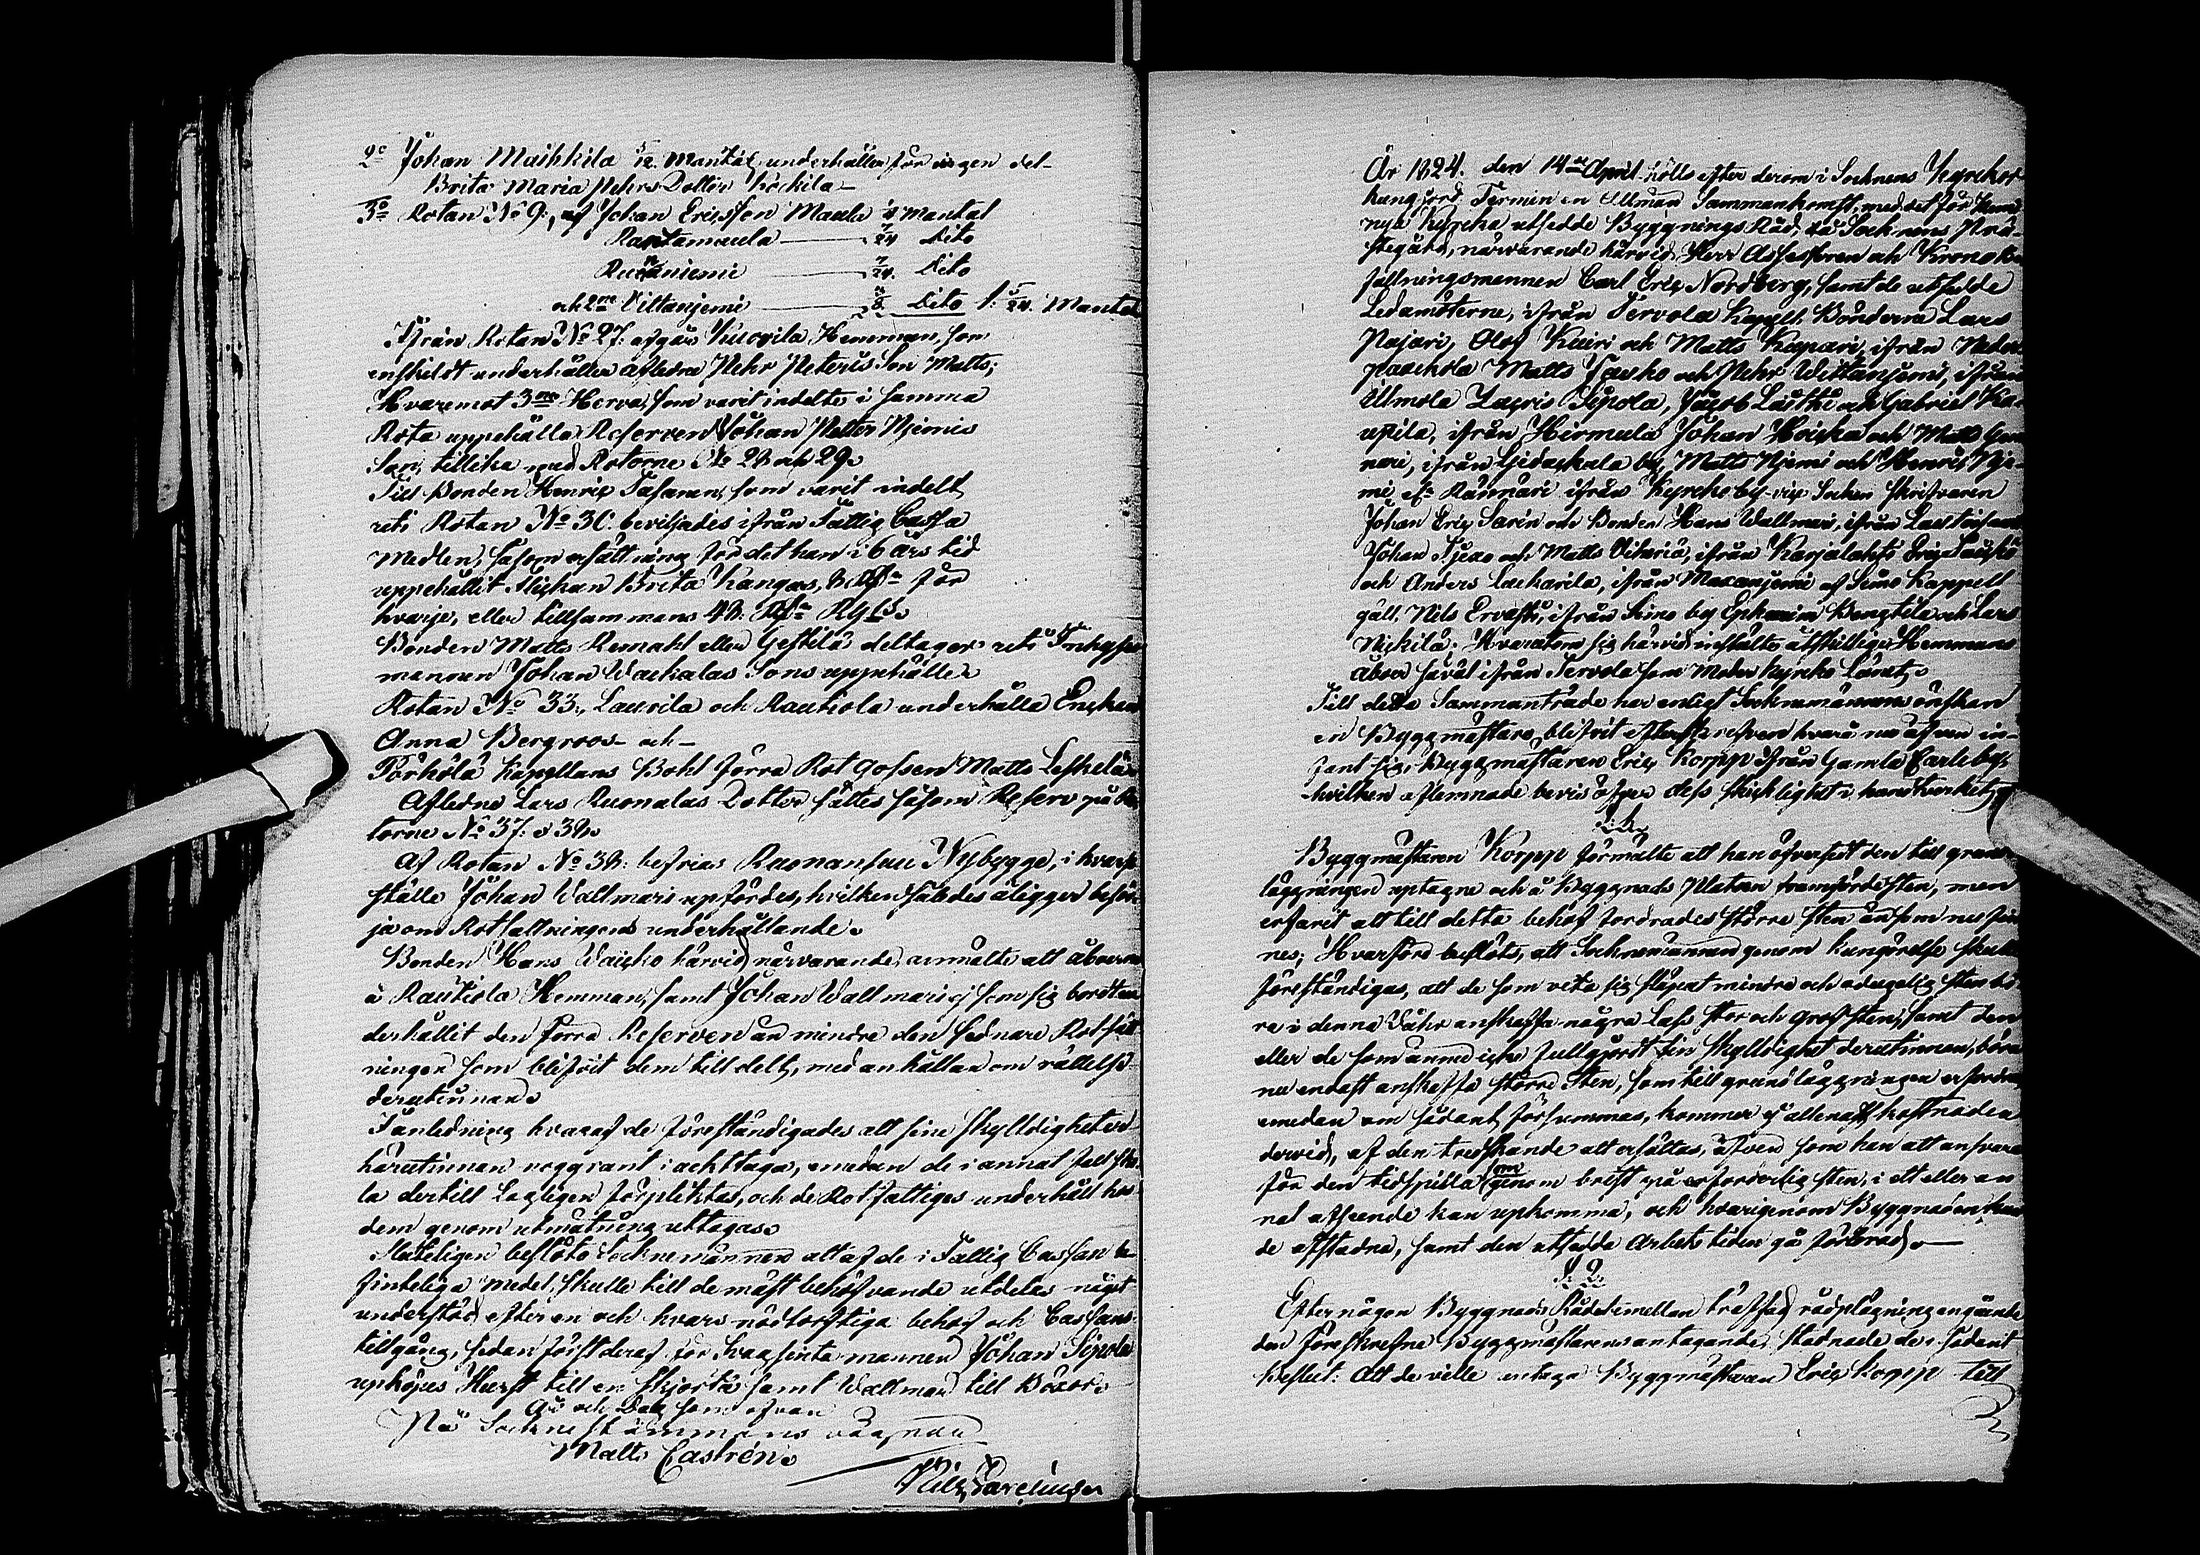 2o Johan Maihkila 5/12 Mantal, underhåller för ingen del
Brita Maria Pehrs Dotter Köckila
3o Rotan No 9, af Johan Ericsson Maula 1/8 mantal
Rautamaula 7/24 Dito
Ruikaniemi 7/24 Dito
och 2ne Viltanjemi 3/8 Dito 1: 5/24 Mantal
Ifrån Rotan No 27 afgår Kuorila Hemman, som
enskildt underhåller aflidne Pehr Peteris Son Matts;
Hvaremot 3ne Herva, som varit indelte i samma
Rota uppehålla Reserven Johan Petter Niemis
Son, tillika med Rotorne No 28 och 29.
Till Bonden Henric Tasaran, som varit indelt
uti Rotan No 30. beviljades ifrån Fattig Cassa
Medlen, såsom ersättning för det han i 6 års tid
uppehållit Flickan Brita Kangas, 8 Rdr för
hvarje, eller tillsammans 48. Rdr Rgs.
Bonden Matts Remahl eller Gestilä deltager uti Inhyses
mannen Johan Wachalas Sons uppehälle.
Rotan No 33, Laurila och Rautiola underhålla Enckan
Anna Bergroos och
Pörhölä Kapellans Bohl förra Rot gossen Matts Leskelä.
Aflidne Lars Ruonalas Dotter sättes såsom Reserv på Ro
torne No 37: o 38.
Af Rotan No 38: befrias Ruonansuu Nybygge, i hvars
ställe Johan Vallmari upfördes, hvilken således åligger besör
ja om Rotfattningens underhållande.
Bonden Hans Waisko härvid närvarande, anmälte att åboerne
å Rautiola Hemman, samt Johan Wallmari ej som sig bordt un
derhållit den förra Reserven än mindre den sednare Rotfatt
ningen som blifvit dem till delt, med anhållan om rättelse
derutinnan.
I anledning hvaraf de föreständigades att sine skylldigheter
härutinnan noggrant i achttaga, emedan de i annat fall sko
la dertill Lagligen förpliktas, och de Rotfattiges underhåll hos
dem genom utmätning uttagas.
Slutligen beslöto Socknemännen att af de i Fattig Cassan be
finteliga medel, skulle till de mäst behöfvande utdelas något
understöd efter en och hvars nödtorftiga behof och Cassans
tillgång, sedan först deraf för Svagsinta mannen Johan Sipola
uphöpes Hurst till en skjorta samt Wallmar till Böxor.
År och Dag som ofvan
På Sockne stämmans vägnar
Matts Castrén
År 1824. den 14de April hölls efter derom i Socknens Kyrckor
kungjord Termin en Allmän Sammankomst, med det för Kemi
nya Kyrcka utsedde Byggnings Råd, så Socknens Prä-
stegård, närvarande härvid, Herr Assessoren och Krono Be
fallningsmannen Carl Eric Nordberg, samt de utsedde
Ledamöterne, ifrån Tervola Kapell, Bönderna Lars
Pajari, Olof Kuiri och Matts Kapari, ifrån Neder
paackola Matts Jausko och Pehr Wittanjemi, ifrån
Ilmola Zacris Sipola, Jacob Lasthi och Gabriel Ka-
upila, ifrån Hirmula Johan Hoicka och Matts
nari, ifrån Liedackala by, Matts Njemi och Henric Nje-
mi ef. Rännäri ifrån Kyrckoby vice Socken Skrifvaren
Johan Eric Sarin och Bonden Hans Wallmari, ifrån Lautiosaari
Johan Tjero och Matts Viharia, ifrån Karjalahti Eric Taucko
och Anders Zacharila, ifrån Maxanjemi af Simo Kappell
gäll. Nils Ervasti, ifrån Simo by Ephraim Bengtila och Lars
Nickilä; Hvarutom sig härvid inställte åtskillige Hemmans
åboer såväl ifrån Tervola som Moder Kyrcko Länet.
Till detta Sammanträde har enligt Socknemännens önskan
en Byggmästare, blifvit efterskrefven hvarå nu äfven in-
fant sig, Byggmästaren Eric Korpp ifrån Gamla Carleby,
hvilken aflemnade bevis öfver dess skicklighet i handtverket,
§.1.
Byggmästaren Korpp förmälte att han öfversedt den till grund
läggningen uptagne och å Byggnads Platsen framförde Sten, men
erfarit att till detta behof fordrades större sten än som nu fin
nes; Hvarföre beslöts, att Socknemännen genom kungörelse skulle
föreständigas, att de som veta sig släpat mindre och oduglig sten bö-
ra i denna Vähr anskaffa några Lass stor och grof sten, samt den
eller de som ännu icke fullgjordt sin skylldighet derutinnan, böra
nu endast anskaffa större Sten, som till grundläggningen erfordras
emedan om sådant försummes, kommer ej allenast kostnaden
dervid, af den tredskande att ersättas, äfven som han att ansvara
för den tidspilla som genom brist på erforderlig sten, i ett eller an
nat afseende kan upkomma, och hvarigenom Byggnaden kun
de afstadna, samt den utsedde Arbets tiden gå förlorad.
§ 2.
Efter någon Byggnads Rådet emellan träffad rådplägning angående
den föreskrefne Byggmästarens antagande, stadnade de i sådant
Beslut: Att de ville antaga Byggmästaren Eric Korpp till